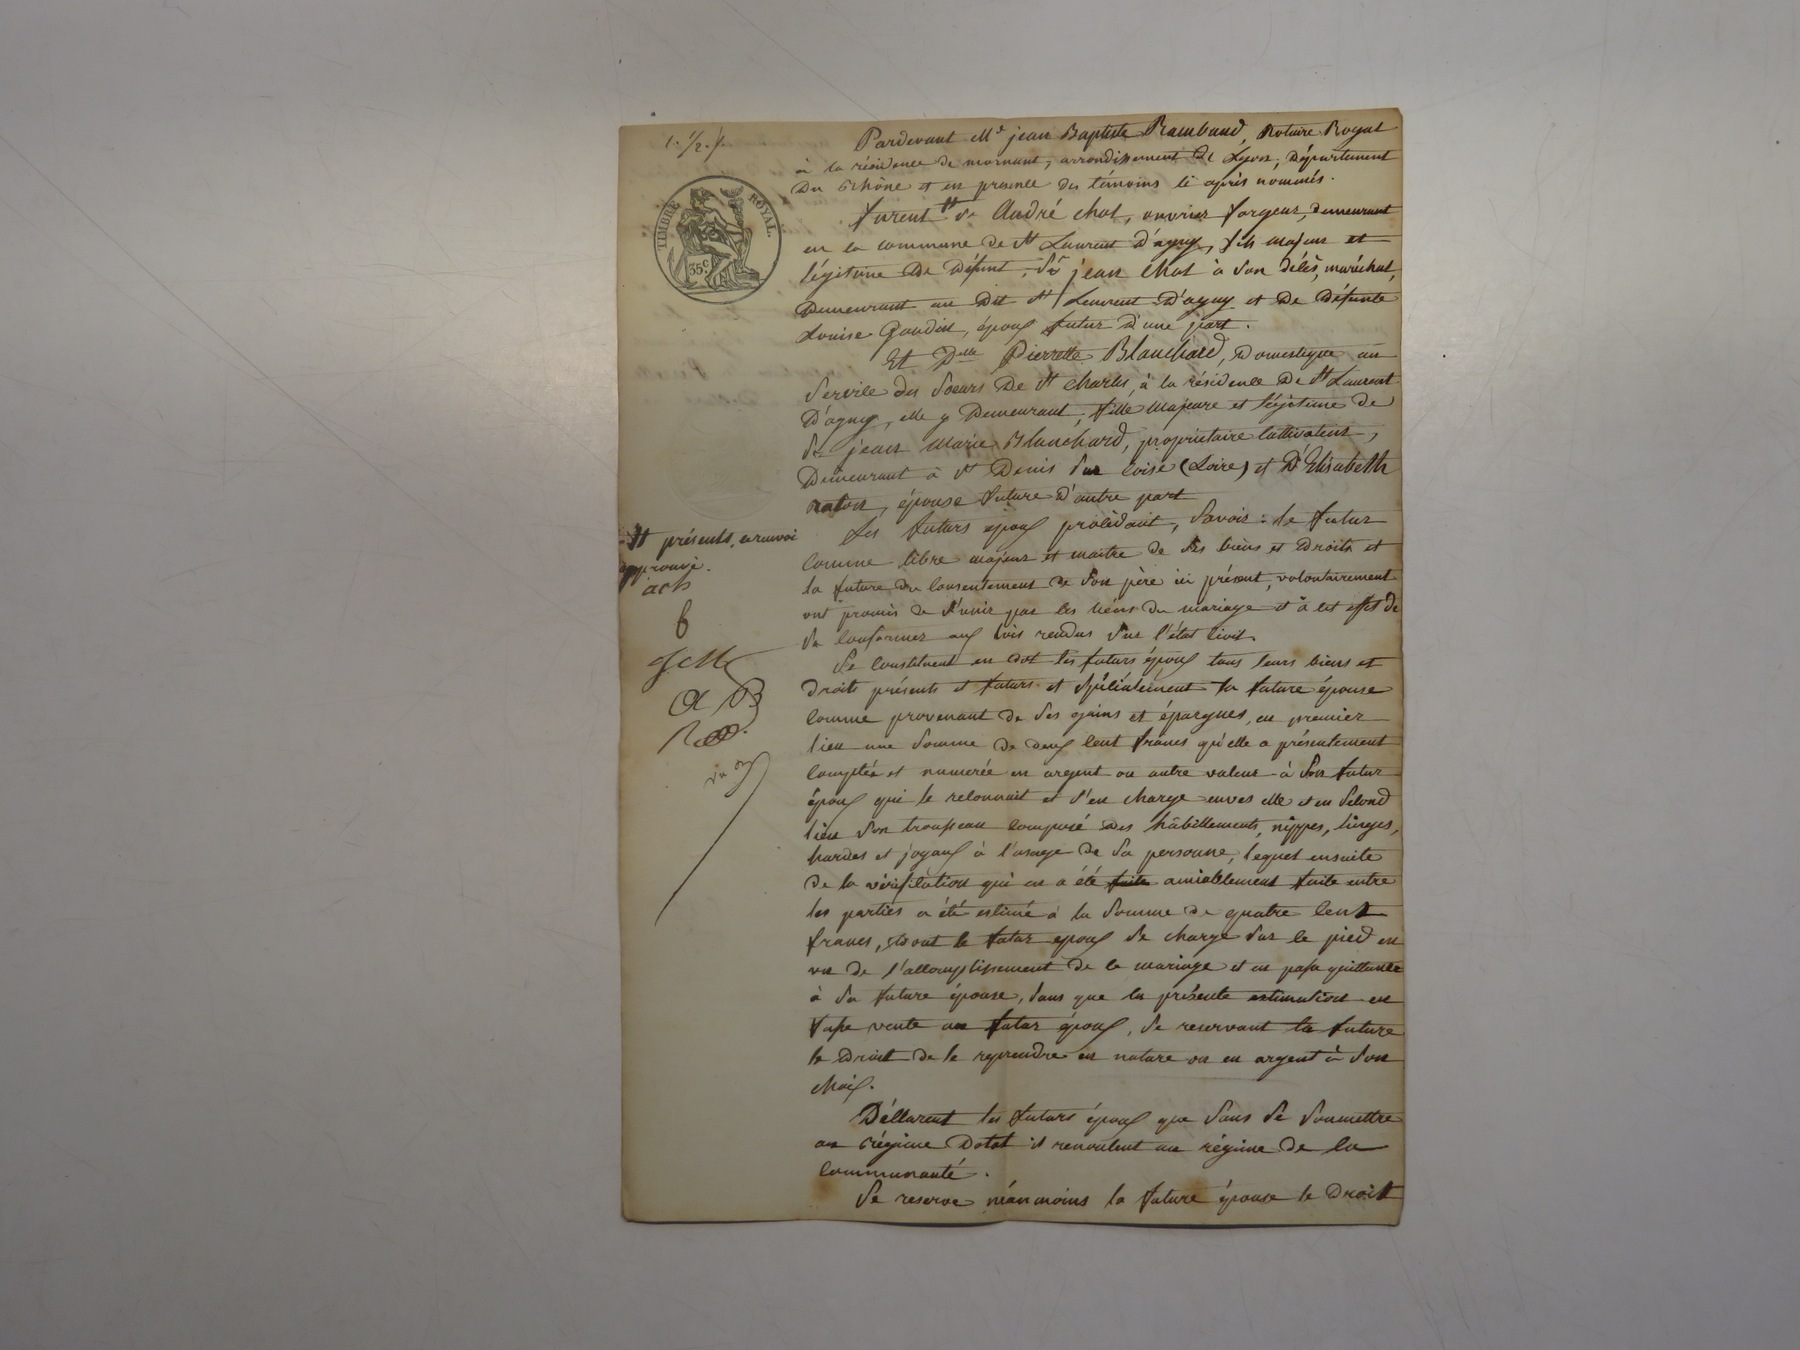 1. 1/2. f.
TIMBRE ROYAL.
35 c
Pardevant Me jean Baptiste Rambaud, Notaire Royal
à la résidence de mornant, arrondissement de Lyon, Département
Du Rhône et en presence des témoins ci après nommés.
furent # Sr André chat, ouvrier forgeur, demeurant
en la commune de St Laurent D'agny, fils majeur et
légitime De Défunt Sr jean Chat à son décès, maréchal,
Demeurant au Dit St Laurent D'agny et De Défunte
Louise Gaudin, époux futur D'une part.
Et Delle Pierrette Blanchard, Domestique au
Service des Soeurs De St Charles, à la résidence De St Laurent
D'agny, elle y Demeurant, fille majeure et légitime de
Sr jean Marie Blanchard, propriétaire cultivateur,
Demeurant à St Denis Sur Coise (Loire) et De Elisabeth
épouse future D'autre part
Les futurs époux procédant, Savoir: le futur
comme libre majeur et maitre de Ses biens et Droits et
la future du consentement de Son père ici présent, volontairement
ont promis de S'unir par les liens du mariage et à cet effet de
Se conformer aux lois rendus Sur l'état civil.
Se Constituent en dot les futurs époux tous leurs biens et
droits présents et futurs et Spécialement la future épouse
comme provenant de Ses gains et épargnes, en premier
lieu une Somme de deux cent francs qu'elle a présentement
comptée et numerée en argent ou autre valeur à Son futur
époux qui le reconnait et S'en charge enves elle et en Second
lieu Son trousseau composé des habillements, nippes, linges,
hardes et joyaux à l'usage de Sa personne, lequel ensuite
de la vérification qui en a été faite amiablement faite entre
les parties a été estimé à la Somme de quatre cent
francs, dont le futur époux Se charge Sur le pied en
vu de l'accomplissement de ce mariage et en passe quittance
à Sa future épouse, Sans que la présente estimation en
fasse vente au futur époux, Se reservant la future
le Droit de le reprendre en nature ou en argent à Son
choix.
Déclarent les futurs époux que Sans Se Soumettre
au régime Dotal il renoncent au régime de la
Communauté.
Se reserve néanmoins la future épouse le Droit
# présents, renvoi
approuvé.
ach
B
JCM
A B